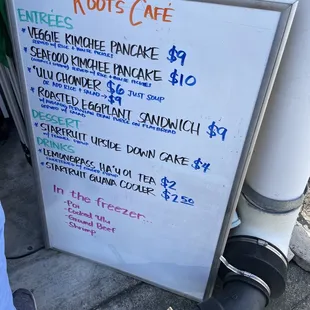 ROOTS CAFÉ
ENTRÉES
VEGGIE KIMCHEE PANCAKE $9
SERVED w/ RICE & HOUSE PICKLES
SEAFOOD KIMCHEE PANCAKE $10
SERVED w/ RICE & HOUSE PICKLES
'ULU CHOWDER $6 JUST SOUP
OR ADD RICE & SALAD → $9
ROASTED EGGPLANT SANDWICH $9
SERVED w/ SALAD
DESSERT
STARFRUIT UPSIDE DOWN CAKE $4
DRINKS
LEMONGRASS HA'UOI TEA $2
STARFRUIT GUAVA COOLER $2.50
In the freezer...
- Poi
- Cooked Ulu
- Ground Beef
- Shrimp